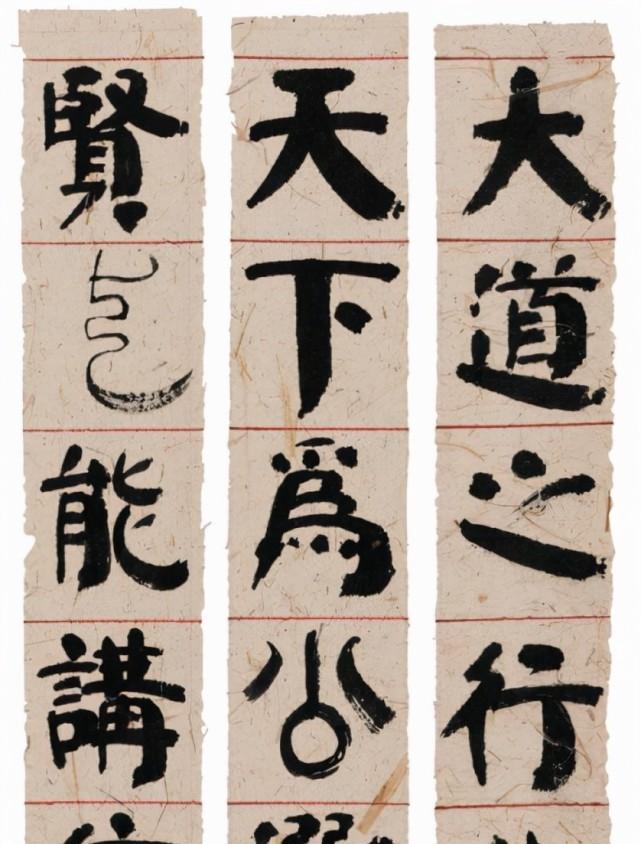 大道之行
天下爲公
賢与能講